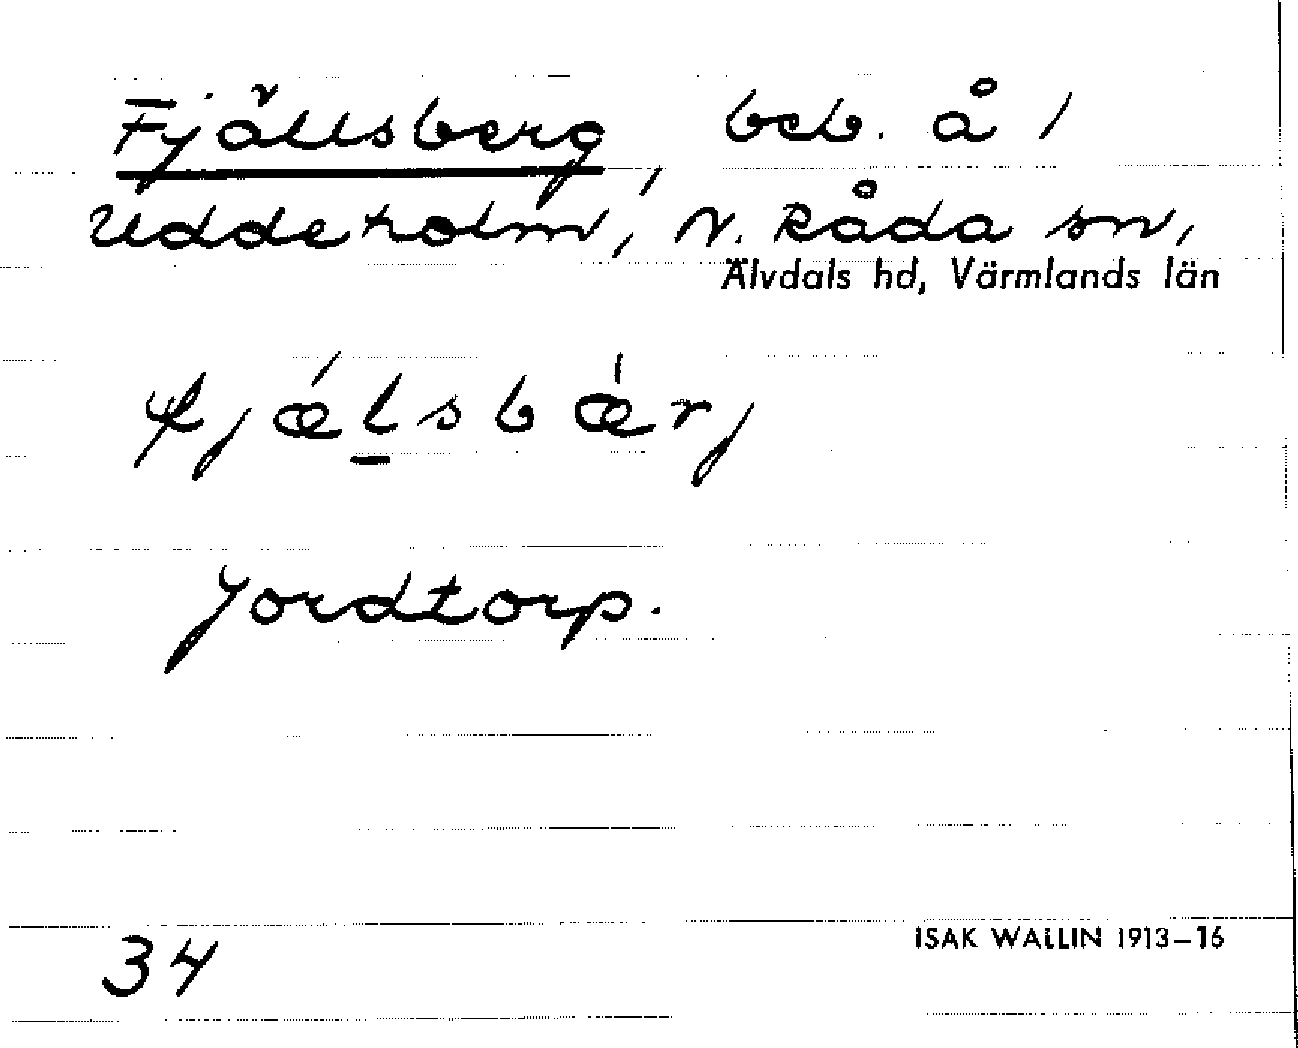 Fjällsberg, beb. å /
Uddeholm, N. Råda sn,
Älvdals hd, Värmlands län
fjǽl̲sbǽrj
Jordtorp.
34
ISAK WALLIN 1913–16